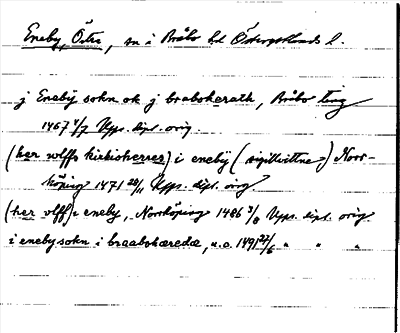 Eneby, Östra, sn i Bråbo hd Östergötlands l.
j Eneby sokn ok j brabokerath, Bråbo ting
1467 4/7 Upps. dipl. orig.
(her wlffs kirkioherres) i eneby (sigillvittne) Norr-
köping 1471 28/11 Upps. dipl. orig.
(her vlff) i eneby, Norrköping 1486 3/8 Upps. dipl. orig.
i eneby sokn i braabokæredæ, u.o. 1491 27/6 " " "